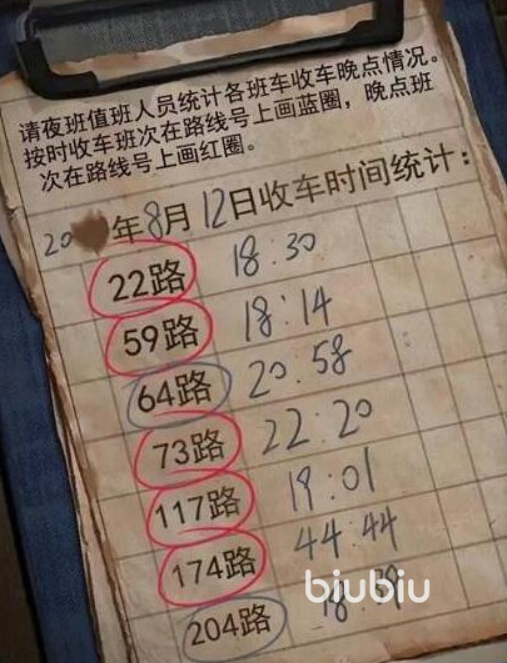 请夜班值班人员统计各班车收车晚点情况。
按时收车班次在路线号上画蓝圈，晚点班
次在路线号上画红圈。
20 年8月12日收车时间统计：
22路 18:30
59路 18:14
64路 20:58
73路 22:20
117路 19:01
174路 44:44
204路 18:39
biubiu